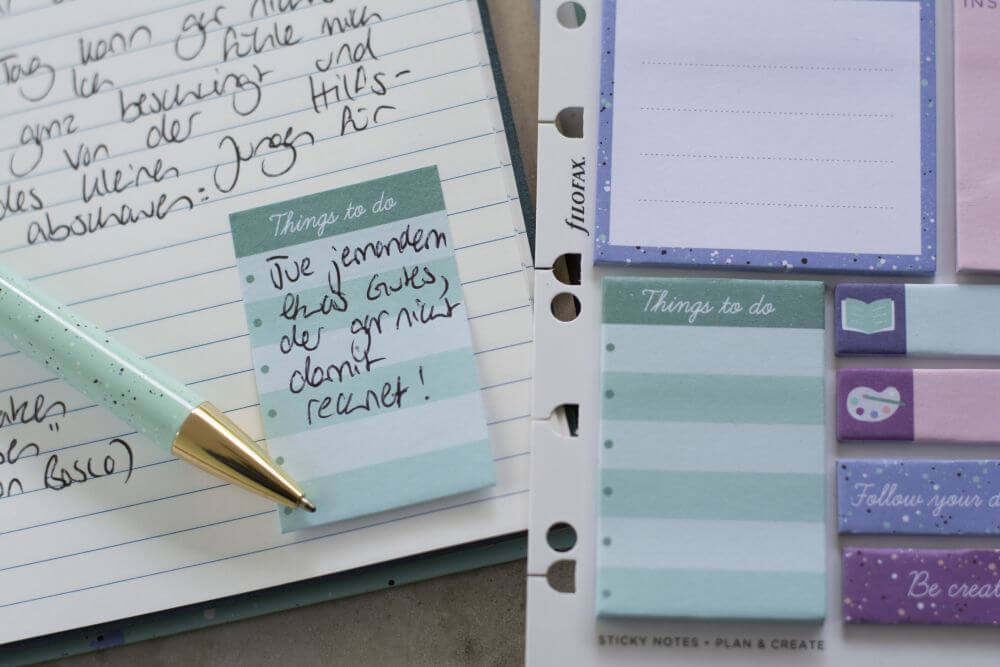 Tag kann gar nich
Ich fühle mich
ganz beschwingt und
von der Hilfs-
des kleinen Jungen für
abschauen:
Things to do
Tue jemandem
etwas Gutes,
der gar nicht
damit
rechnet!
Bosco)
FILOFAX
INS
Things to do
Follow your d
Be creat
STICKY NOTES • PLAN & CREATE